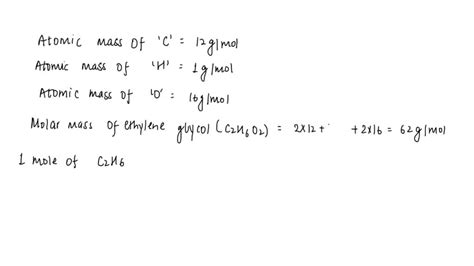 Atomic mass of 'C' = 12g/mol
Atomic mass of 'H' = 1g/mol
Atomic mass of 'O' = 16g/mol
Molar mass of ethylene glycol (C2H6O2) = 2x12 + + 2x16 = 62g/mol
1 mole of C2H6